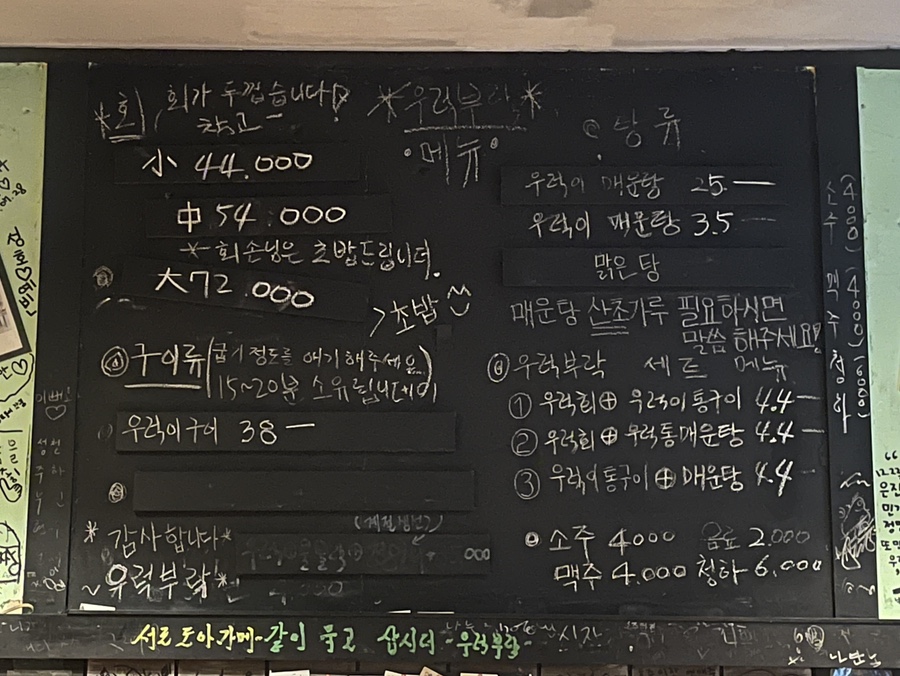 *우럭부락*
·메뉴·
*회 회가 두껍습니다!
참고~
小 44.000
中 54.000
*회손님은 초밥드립니다.
大72.000
>초밥
구이류(굽기정도를 얘기해주세요
15~20분 소유됩니다)
우럭이구이 38ー
*감사합니다*
~우럭부락*
탕류
우럭이 매운탕 25.ー
우럭이 매운탕 35ー
맑은탕
매운탕 산초가루 필요하시면
말씀 해주세요!
우럭부락 세트 메뉴
① 우럭회⊕우럭이통구이 4.4ー
② 우럭회⊕우럭통매운탕 4.4ー
③ 우럭이통구이⊕매운탕 4.4ー
소주 4000 음료 2.000
맥주 4.000 청하 6,000
소주 (4000) 맥주 (4000) 청하 (6000)
서로 도아가메~같이 묵고 삽시더~우럭부락~